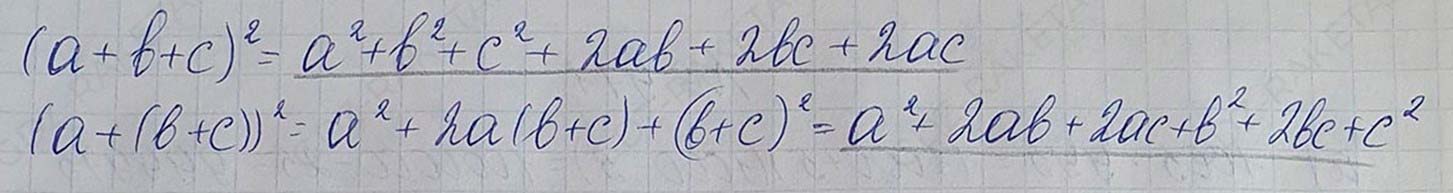 (a+b+c)²=a²+b²+c²+2ab+2bc+2ac
(a+(b+c))²=a²+2a(b+c)+(b+c)²=a²+2ab+2ac+b²+2bc+c²